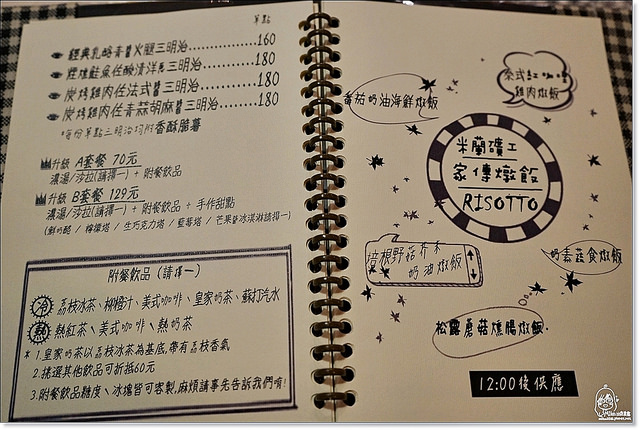 單點
經典乳酪青醬火腿三明治..............160
煙燻鮭魚佐酸漬洋蔥三明治.........180
炭烤雞肉佐法式醬三明治............180
炭烤雞肉佐青蒜胡麻醬三明治......180
*每份單點三明治均附香酥脆薯
升級 A套餐 70元
濃湯/沙拉(請擇一) + 附餐飲品
升級 B套餐 129元
濃湯/沙拉(請擇一) + 附餐飲品 + 手作甜點
(鮮奶酪 / 檸檬塔 / 生巧克力塔 / 藍莓塔 / 芒果冰淇淋請擇一)
附餐飲品 (請擇一)
冷 荔枝冰茶、柳橙汁、美式咖啡、皇家奶茶、蘇打汽水
熱 熱紅茶、美式咖啡、熱奶茶
* 1.皇家奶茶以荔枝冰茶為基底,帶有荔枝香氣
2.挑選其他飲品可折抵60元
3.附餐飲品糖度、冰塊皆可客製,麻煩請事先告訴我們唷!
泰式紅咖哩
雞肉燉飯
番茄奶油海鮮燉飯
米蘭礦工
家傳燉飯
RISOTTO
培根野菇芥末
奶油燉飯
奶素蔬食燉飯
松露蘑菇燻腸燉飯.
12:00後供應